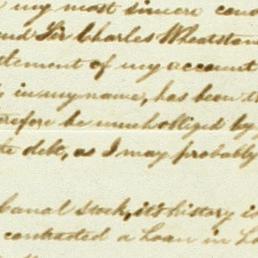 my most sincere con
and Sir Charles Wheatston
tlement of my account
in my name, has been t
refore be much obliged by
te debt, as I may probably
Canal Stock, it's history is
contracted a Loan in Lo